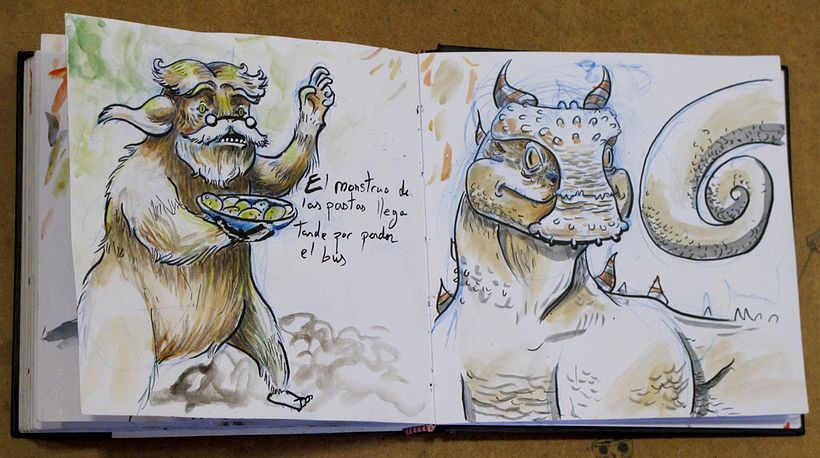 El monstruo de
las pastas llega
tarde por perder
el bus